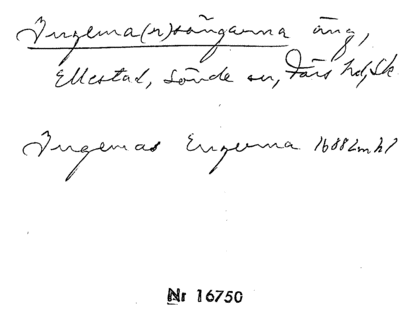 Ingema(r)sängarna äng,
Ellestad, Sövde sn, Färs hd, Sk
Ingemas Engerna 1688 Lmhl
Nr 16750